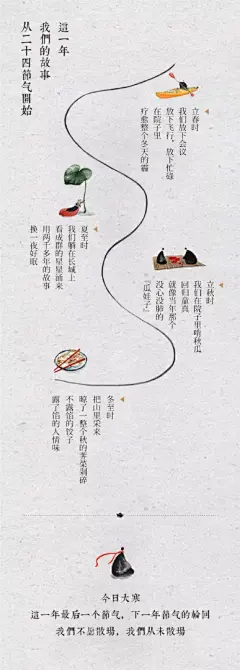 這一年
我們的故事
从二十四節气開始
立春时
我们放下会议
放下飞行，放下忙碌
在院子里
疗愈整个冬天的霾
夏至时
我们躺在长城上
看成群的星星涌来
用两千多年的故事
换一夜好眠
立秋时
我们在院子里啃秋瓜
回归童真
就像当年那个
没心没肺的
“瓜娃子”
冬至时
把山里采来
晾了一整个秋的荠菜剁碎
不露馅的饺子
露了馅的人情味
今日大寒
這一年最后一个節气，下一年節气的輪回
我們不思散場，我們从未散場